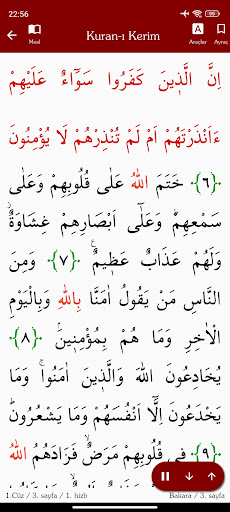 22:56
Meal
Kuran-ı Kerim
A
Araçlar
Ayraç
اِنَّ الَّذٖينَ كَفَرُوا سَوَٓاءٌ عَلَيْهِمْ
ءَاَنْذَرْتَهُمْ اَمْ لَمْ تُنْذِرْهُمْ لَا يُؤْمِنُونَ
﴿٦﴾ خَتَمَ اللّٰهُ عَلٰى قُلُوبِهِمْ وَعَلٰى
سَمْعِهِمْ وَعَلٰٓى اَبْصَارِهِمْ غِشَاوَةٌ
وَلَهُمْ عَذَابٌ عَظٖيمٌ ﴿٧﴾ وَمِنَ
النَّاسِ مَنْ يَقُولُ اٰمَنَّا بِاللّٰهِ وَبِالْيَوْمِ
الْاٰخِرِ وَمَا هُمْ بِمُؤْمِنٖينَ ﴿٨﴾
يُخَادِعُونَ اللّٰهَ وَالَّذٖينَ اٰمَنُوا وَمَا
يَخْدَعُونَ اِلَّٓا اَنْفُسَهُمْ وَمَا يَشْعُرُونَ
﴿٩﴾ فٖى قُلُوبِهِمْ مَرَضٌ فَزَادَهُمُ اللّٰهُ
1.Cüz / 3. sayfa / 1. hizb
Bakara / 3. sayfa